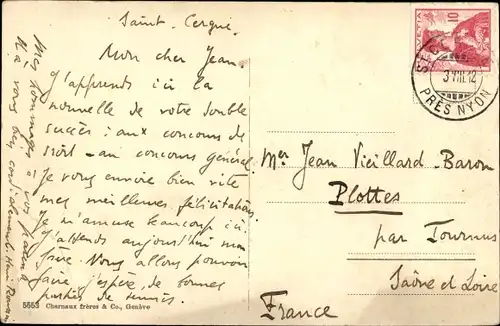 Saint-Cergue.
Mon cher Jean.
J'apprends ici la
nouvelle de votre double
succès : aux concours de
droit - au concours général.
Je vous envoie bien vite
mes meilleures félicitations
Je m'amuse beaucoup ici.
J'attends aujourd'hui mon
frère. Nous allons pouvoir
faire, j'espère, de bonnes
parties de tennis.
Mes hommages à vos parents
A vous bien cordialement Henri
5553 Charnaux frères & Co., Genève
HELVETIA
10
3 VIII.12
PRÈS NYON
Mr Jean Vieillard-Baron
Plottes
par Tournus
Saône et Loire
France